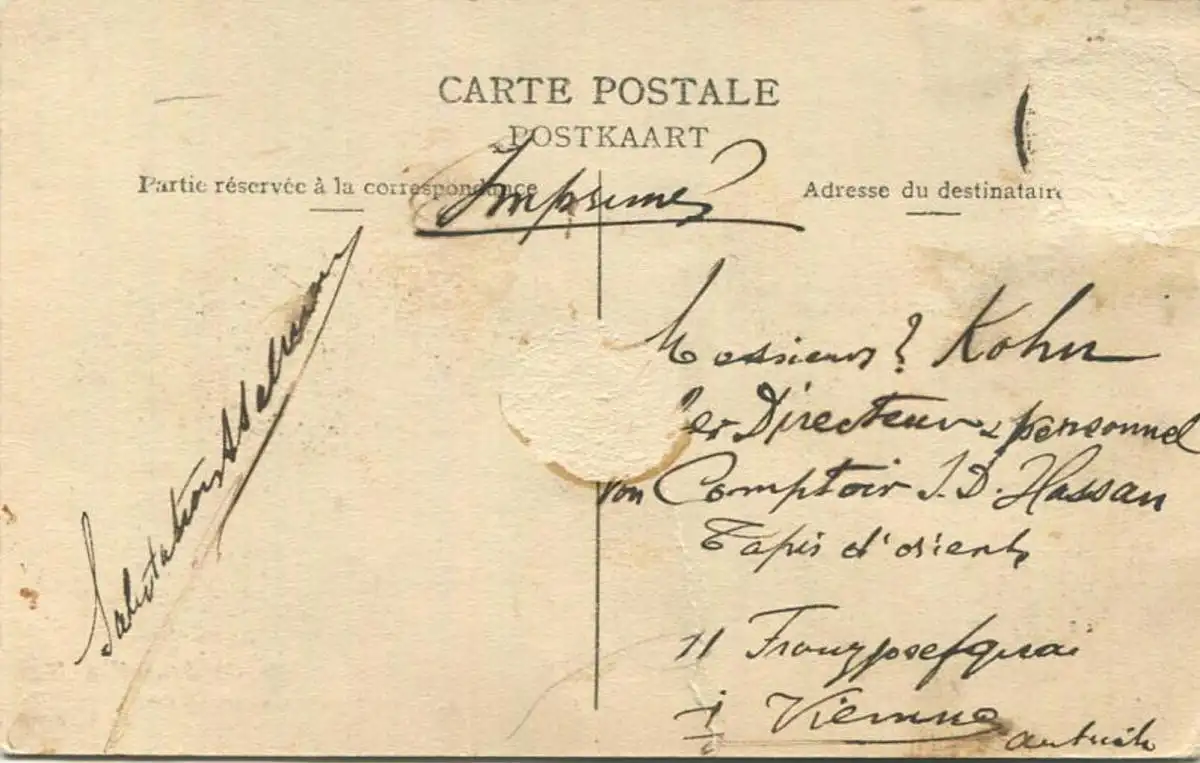 CARTE POSTALE
POSTKAART
Imprimé
Partie réservée à la correspondance
Adresse du destinataire
Salutations
Messieurs Kohn
Directeur & personnel
von Comptoir J. D. Hassan
Tapis d'orient
11 Franzjosefquai
I Vienne